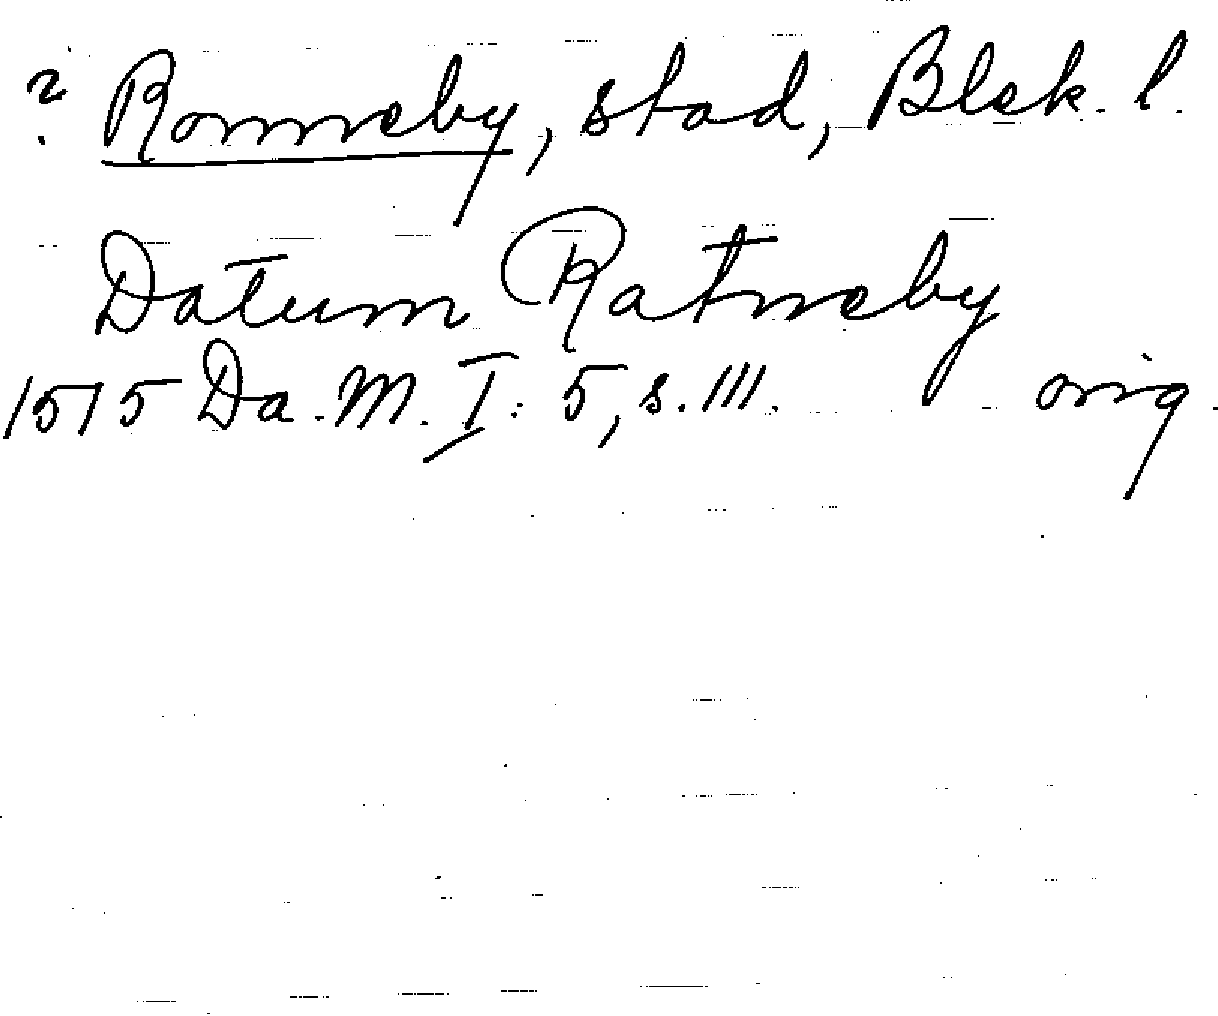 ? Ronneby, stad, Blek. l.
Datum Ratneby
1515 Da. M. I: 5, s. 111. orig.